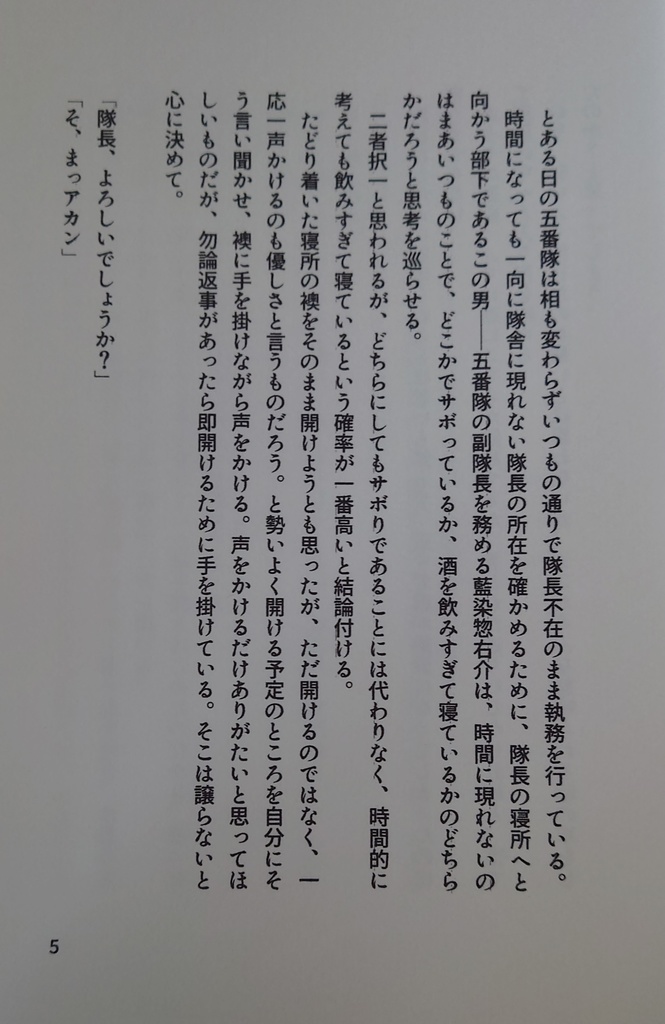 とある日の五番隊は相も変わらずいつもの通りで隊長不在のまま執務を行っている。
時間になっても一向に隊舎に現れない隊長の所在を確かめるために、隊長の寝所へと
向かう部下であるこの男――五番隊の副隊長を務める藍染惣右介は、時間に現れないの
はまあいつものことで、どこかでサボっているか、酒を飲みすぎて寝ているかのどちら
かだろうと思考を巡らせる。
二者択一と思われるが、どちらにしてもサボりであることには代わりなく、時間的に
考えても飲みすぎて寝ているという確率が一番高いと結論付ける。
たどり着いた寝所の襖をそのまま開けようとも思ったが、ただ開けるのではなく、一
応一声かけるのも優しさと言うものだろう。と勢いよく開ける予定のところを自分にそ
う言い聞かせ、襖に手を掛けながら声をかける。声をかけるだけありがたいと思ってほ
しいものだが、勿論返事があったら即開けるために手を掛けている。そこは譲らないと
心に決めて。
「隊長、よろしいでしょうか？」
「そ、まっアカン」
5